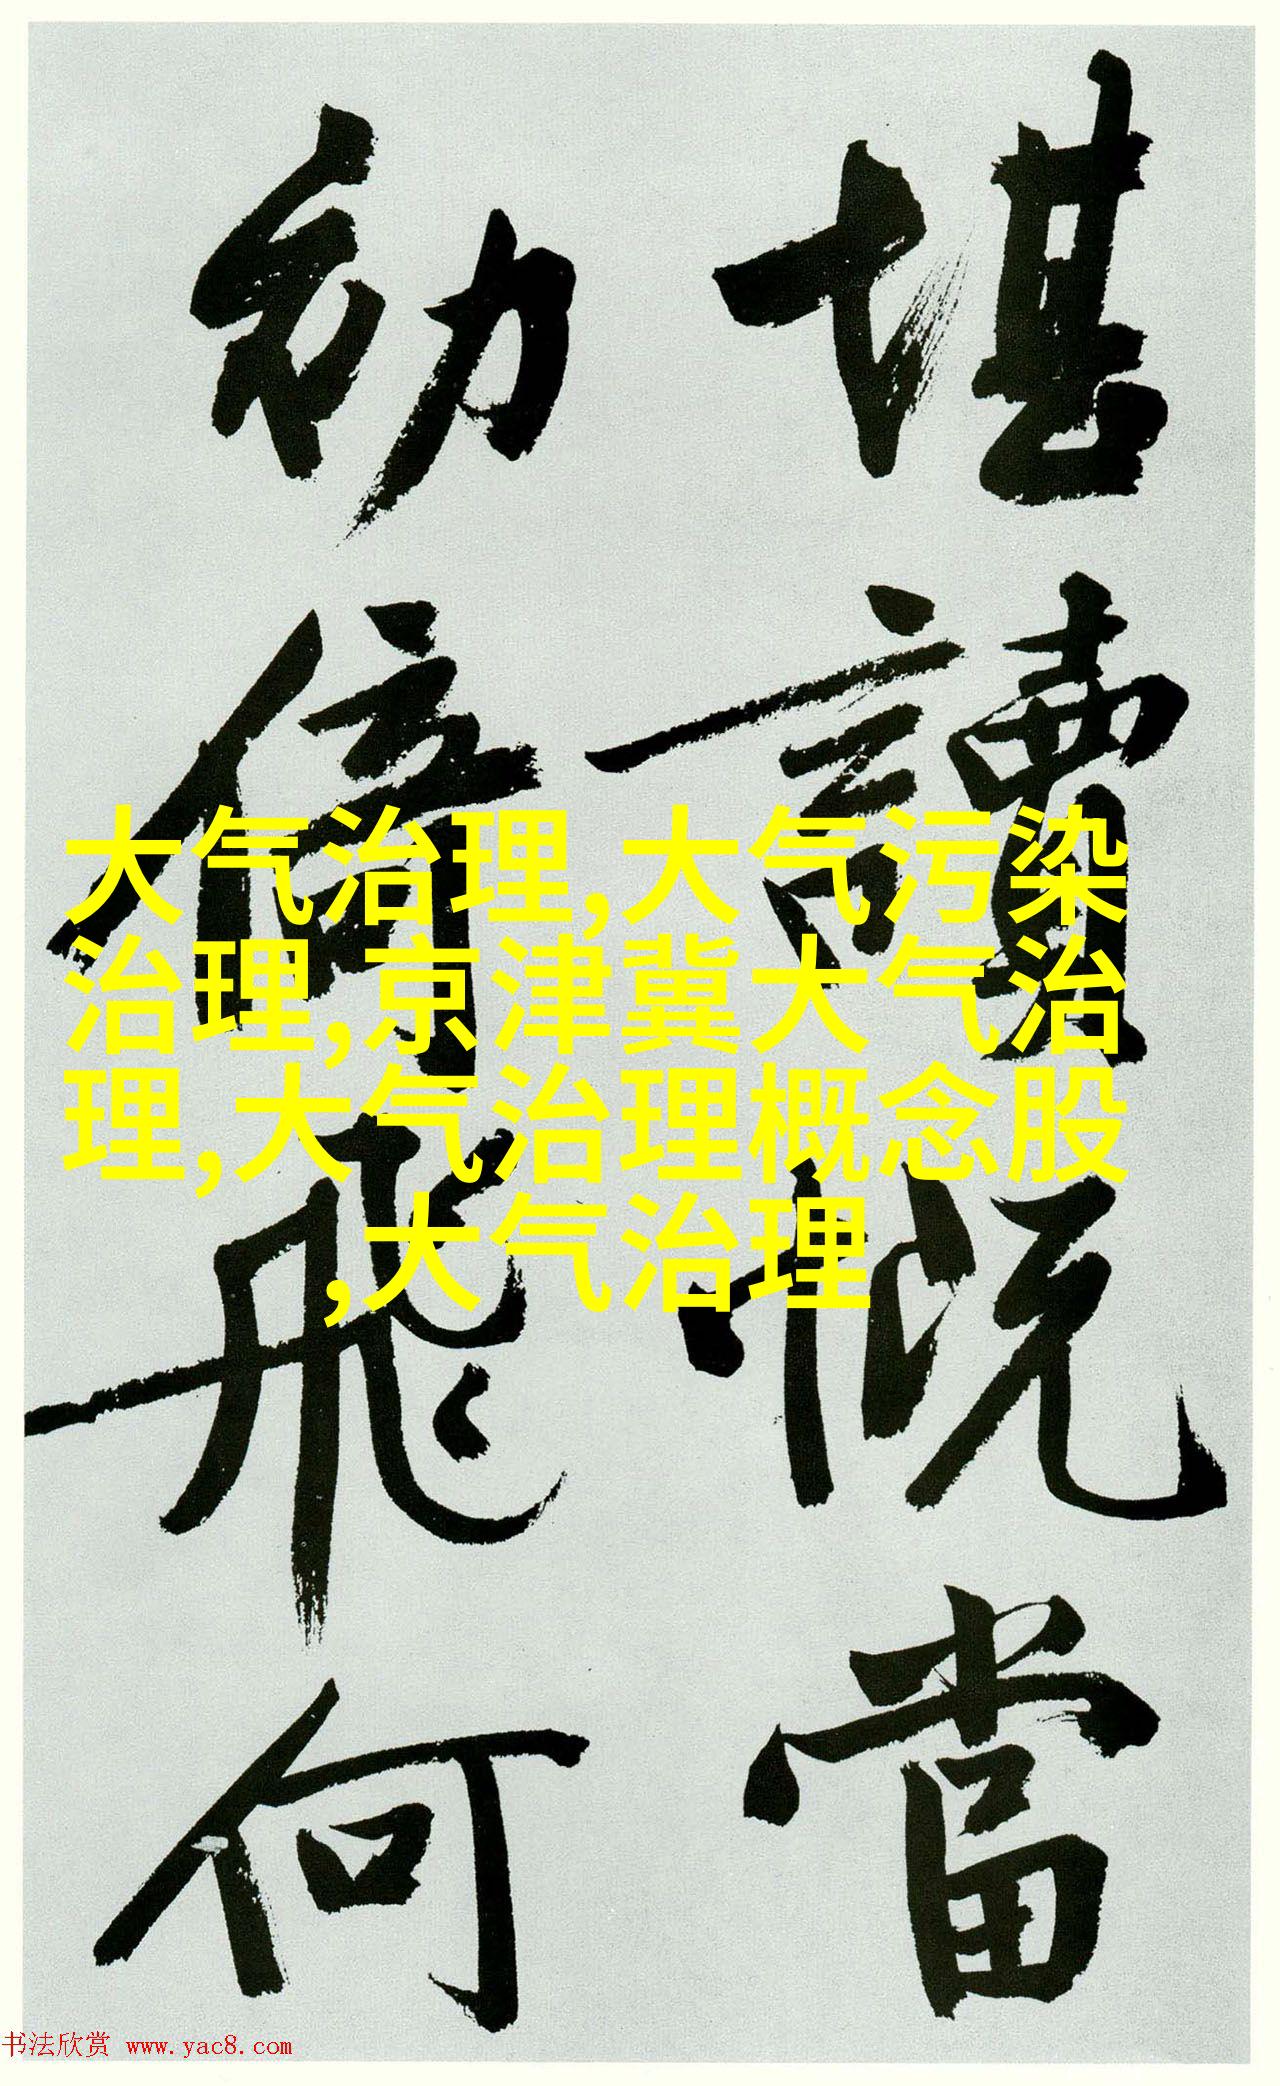 堪讀慨當
初倚飛何
大气治理,大气污染
治理,京津冀大气治
理,大气治理概念股
,大气治理
书法欣赏 www.yac8.com